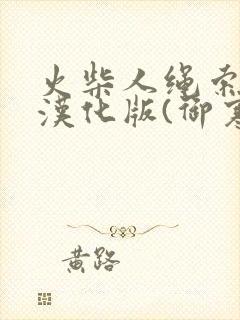 火柴人绳索
漢化版(御寒
黄路